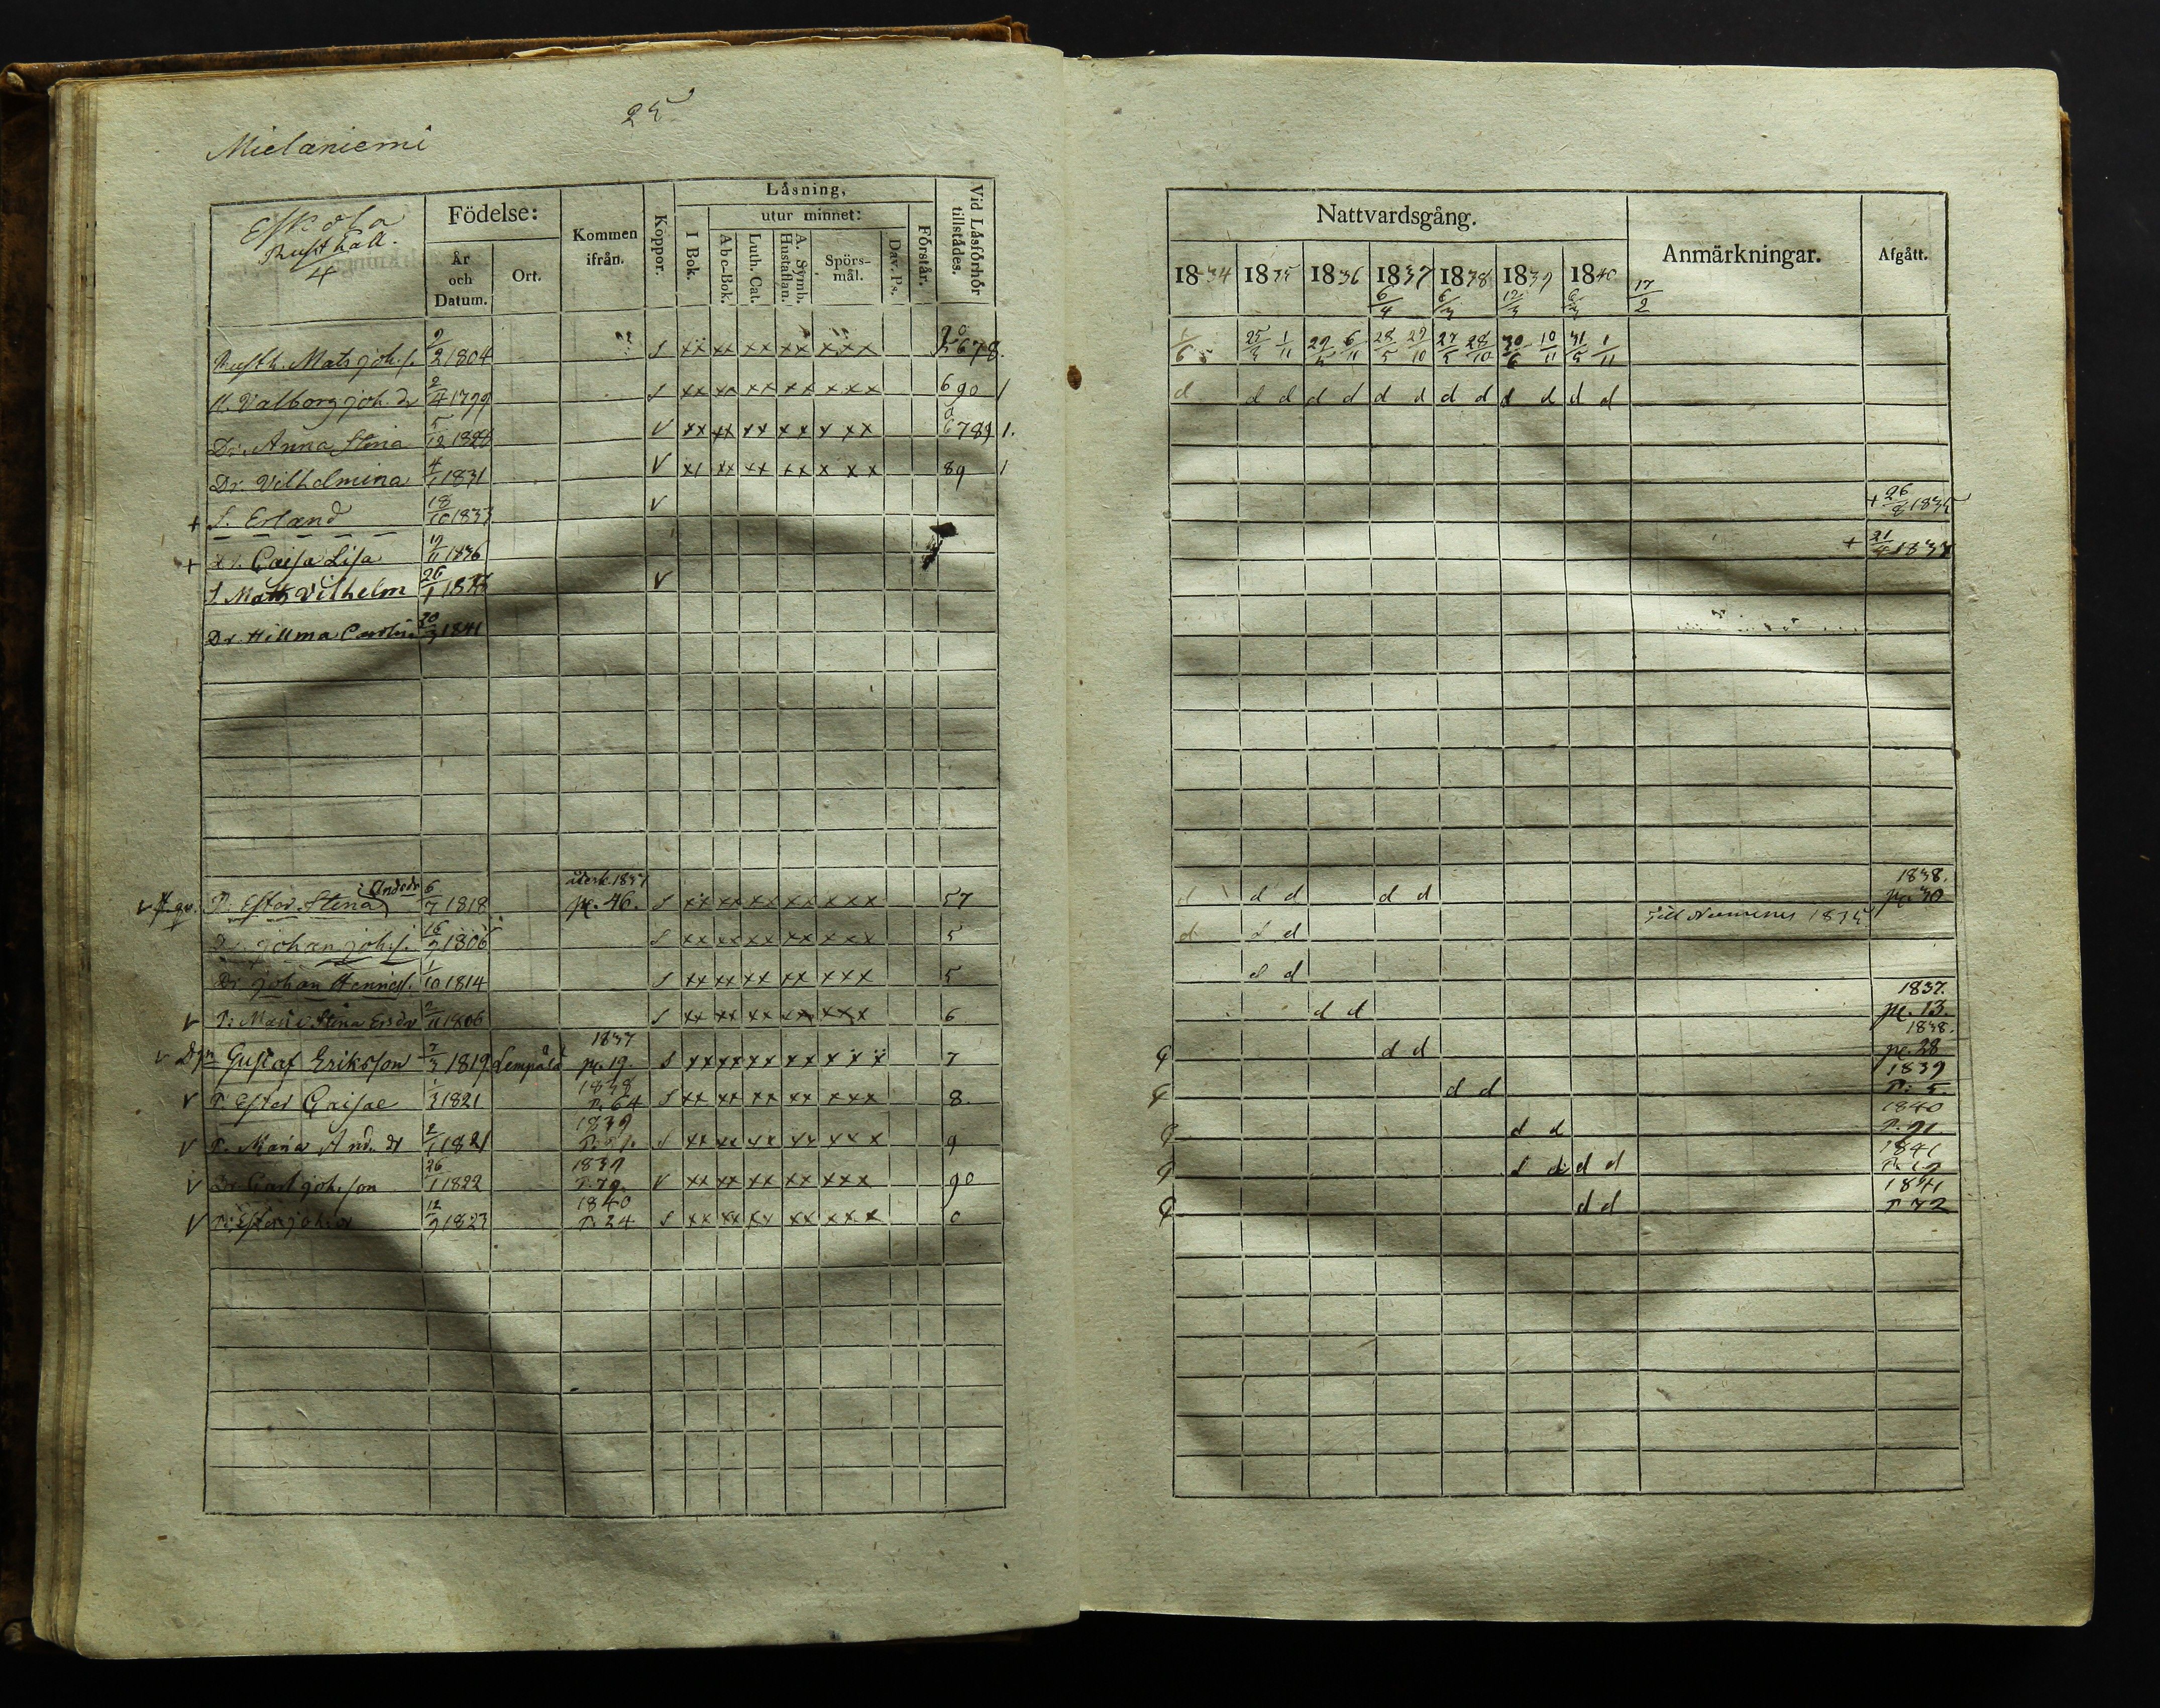 25
Mielaniemi
Eskola
Rusthåll.
4
Födelse:
År
och
Datum.
Ort.
Kommen
ifrån.
Koppor.
Läsning,
I Bok.
utur minnet:
Abc-Bok.
Luth. Cat.
A. Symb.
Hustaflan.
Spörs-
mål.
Dav. Ps.
Förstår.
Vid Läsförhör
tillstädes.
Rusth. Mats joh. s. 2/2 1804 s xx xx xx xx xxx 678.
H. Valborg joh. dr 2/4 1799 s xx xx xx xx xxx 690 1
Dr. Anna Stina 5/12 v xx xx xx xx x xx 6789 1.
Dr. Vilhelmina 4/1 1831 v xx xx xx xx x x x 89 1
+ S. Erland 18/10 1833 v
+ Dr. Caisa Lisa 17/11 1836
S. Matts Vilhelm 26/1 v
Dr. Hillma Carolin 30/3 1841
v P. Ester Stina Andedr 6/7 1818 återk. 1837 p. 46. s xx xx xx xx xxx 57
Dr. johan joh. s. 16/9 1806 s xx xx xx xx xxx 5
Dr. johan Hennes. 1/10 1814 s xx xx xx xx xxx 5
v P: Maria Stina Ersdr 2/11 1806 s xx xx xx xx xxx 6
v Dgn Gustaf Eriksson 7/3 1819 Lempälä 1837 p. 19. s xx xx xx xx x x x 7
v P. Ester Caisae 1/3 1821 1838 P. 64 s xx xx xx xx xxx 8.
v P. Maria And. dr 2/1 1821 1839 s xx xx xx xx xxx 9
v Dr Carl joh. son 26/1 1822 1839 P. 79. v xx xx xx xx xxx 90
v P: Ester joh. dr 12/9 1823 1840 P. 24 s xx xx xx xx xxx 0
Nattvardsgång.
Anmärkningar.
Afgått.
1834 1835 1836 1837 1838 1839 1840
6/4 6/3 17/3 6/3 17/2
25/5 1/11 29/5 6/11 28/5 29/10 27/5 28/10 30/6 10/11 31/5 1/11
d d d d d d d d d d d d d
+ 26/8 1835
+ 21/4 1837
d d d d d 1838. p. 30
d d d Till Nummenis 1835
d d
d d 1837. p. 13.
d d 1838. p. 28
d d 1839 P: 5.
d d 1840 P. 91
d d d d 1841 P. 19
d d 1841 P 72